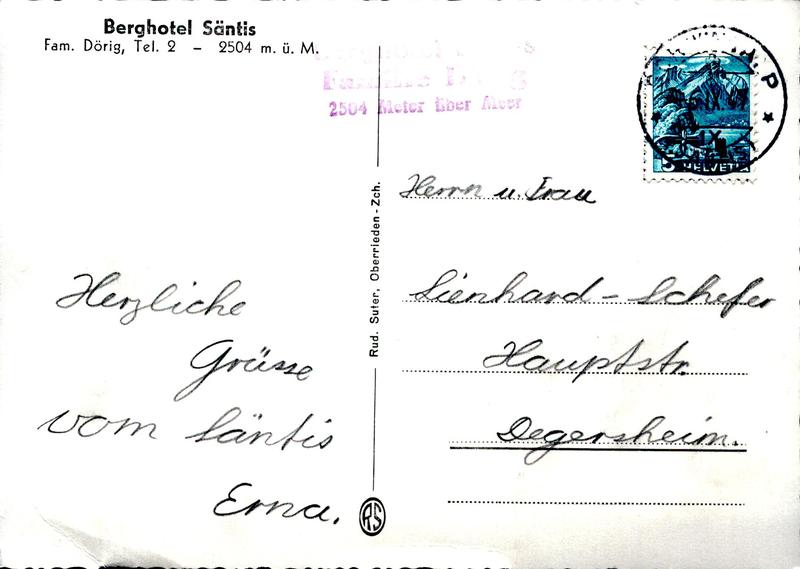 Berghotel Säntis
Fam. Dörig, Tel. 2 – 2504 m. ü. M.
2504 Meter über Meer
HELVETIA
Herrn u. Frau
Lienhard - Schefer
Hauptstr.
Degersheim.
Herzliche
Grüsse
vom Säntis
Erna.
Rud. Suter, Oberrieden - Zch.
RS